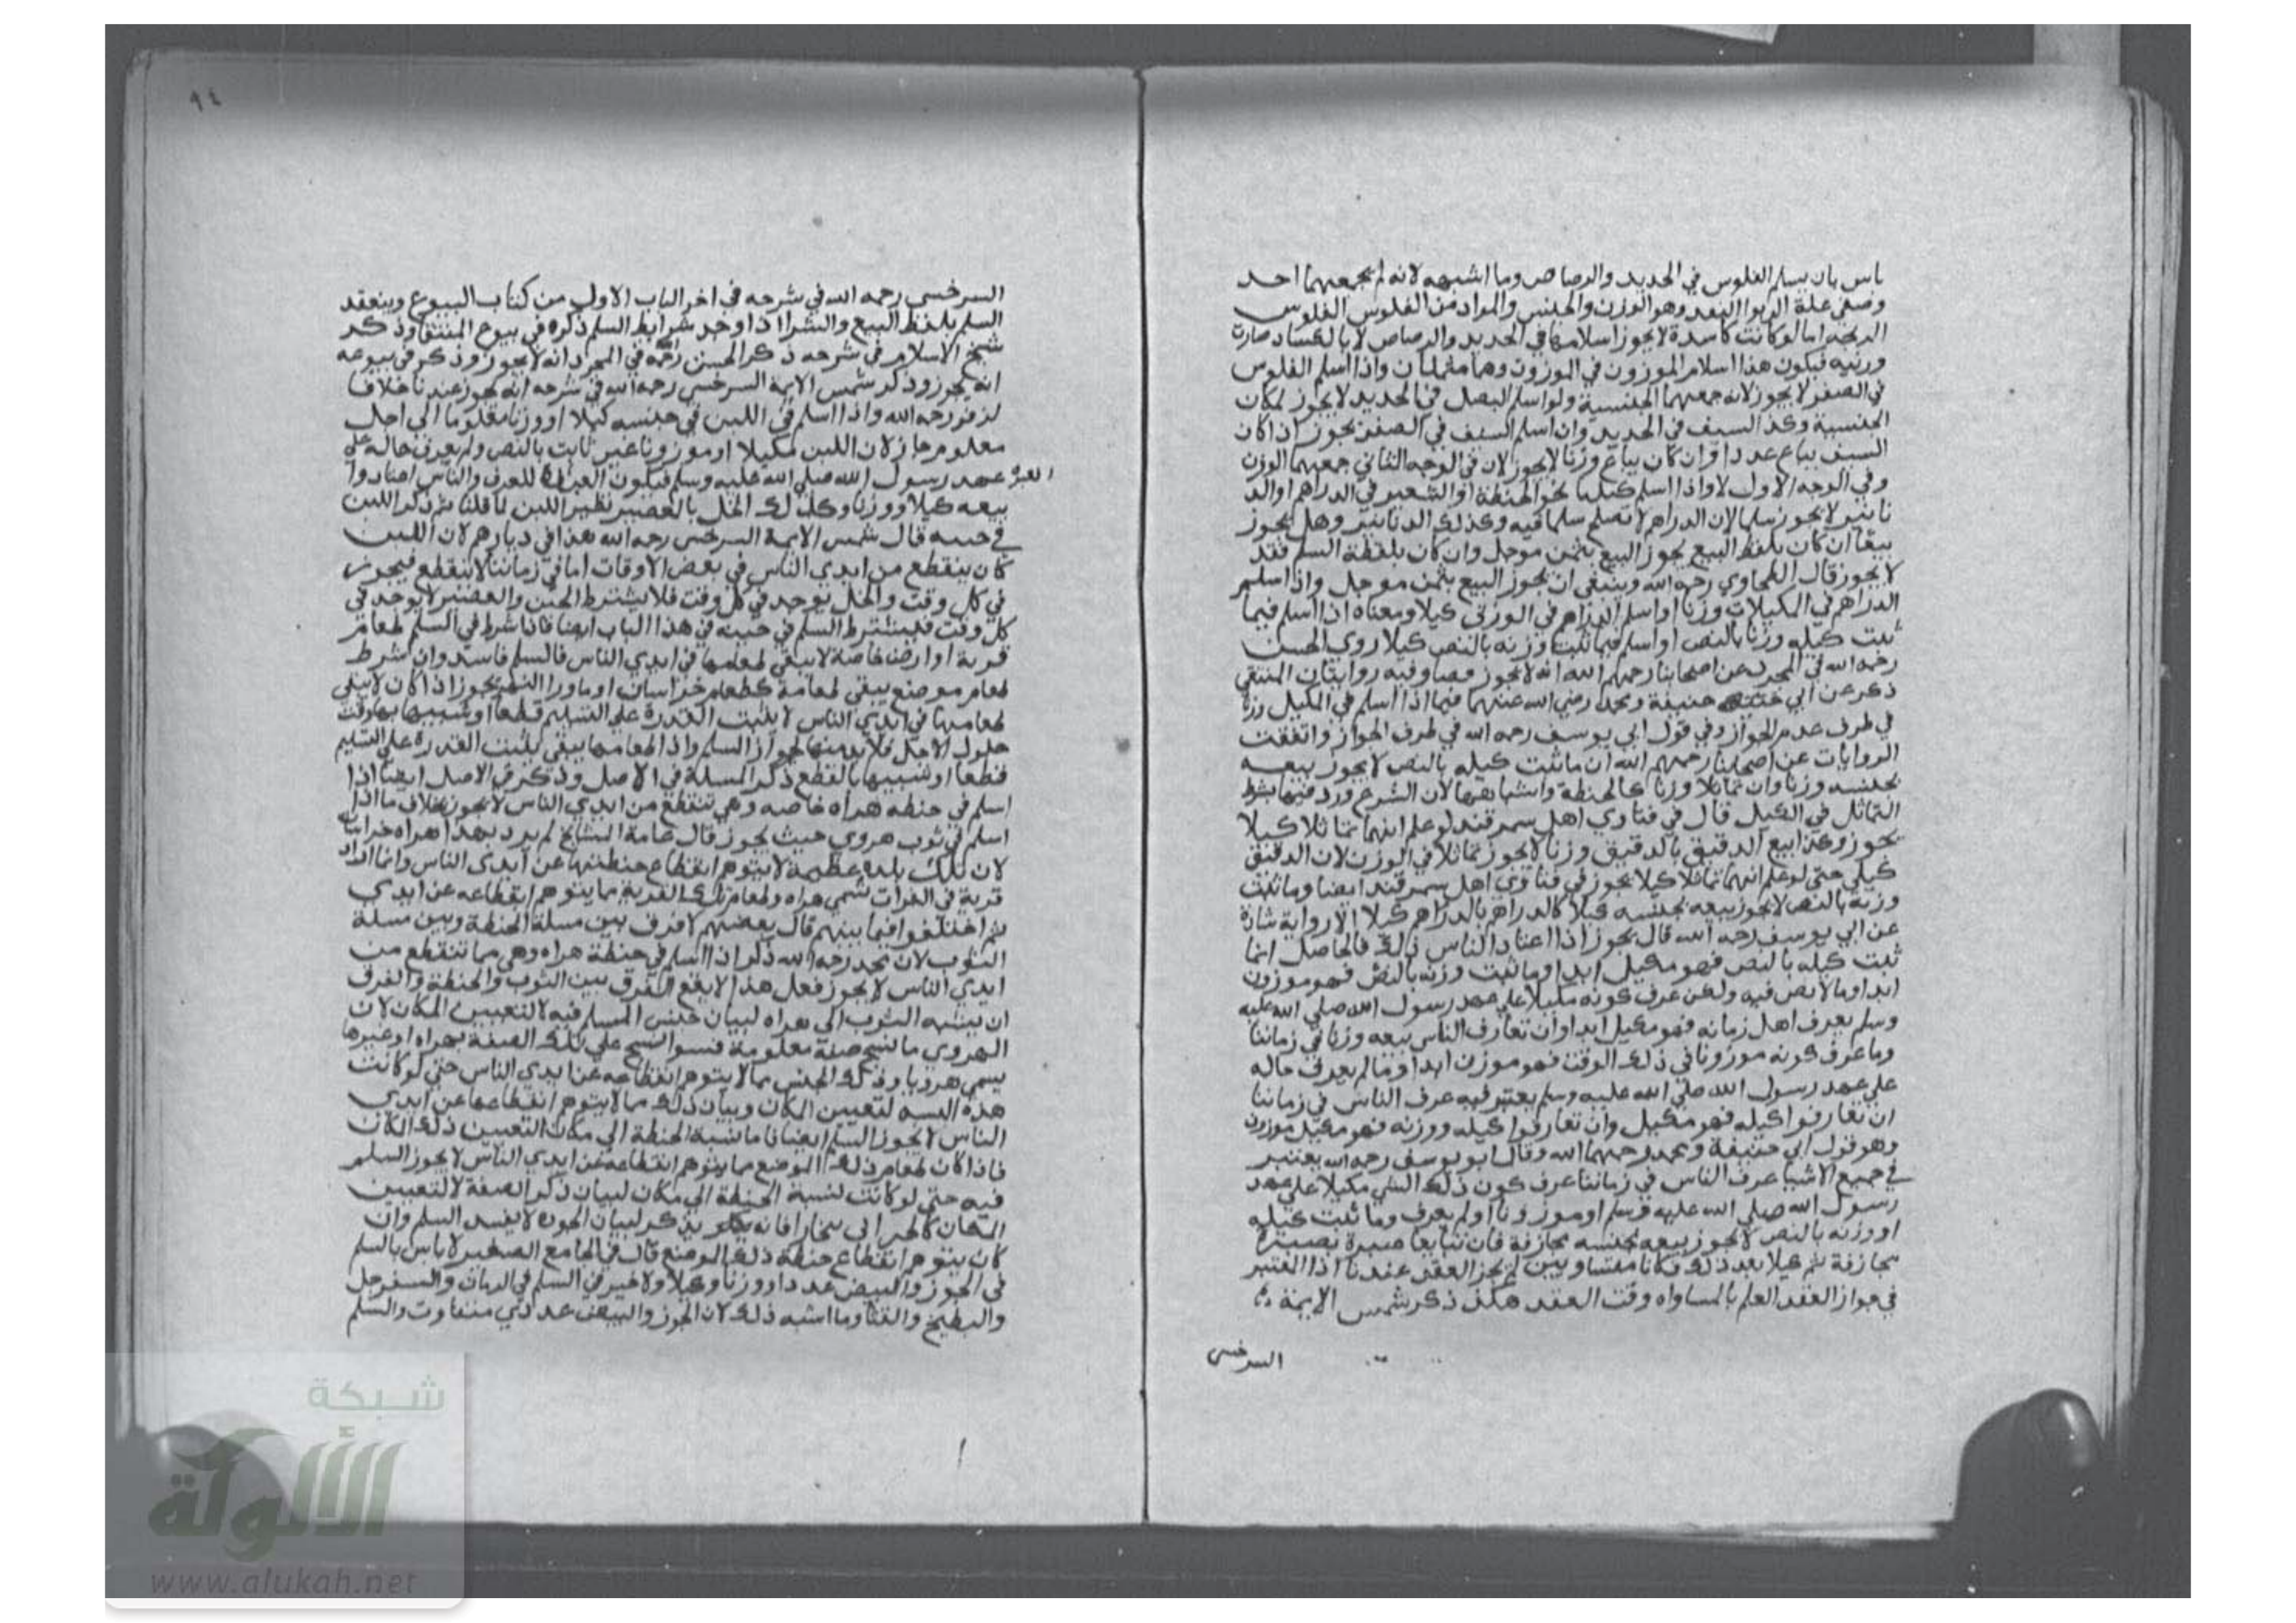 باس بان يسلم الفلوس في الحديد والرصاص وما اشبهه لانه لم يجمعهما احد
وصفي علة الربوا النقد وهو الوزن والجنس والمراد من الفلوس الفلوس
الريجه اما لو كانت كاسدة لا يجوز اسلامها في الحديد والرصاص لا بالكساد صارت
وزنيه فيكون هذا اسلام الموزون في الموزون وهما مثمنان واذا اسلم الفلوس
في الصفر لا يجوز لانه جمعهما الجنسية ولو اسلم النصل في الحديد لا يجوز لمكان
الجنسية وكذا السيف في الحديد وان اسلم السيف في الصفر يجوز اذا كان
السيف يباع عددا وان كان يباع وزنا لا يجوز لان في الوجه الثاني جمعهما الوزن
وفي الوجه الاول لا واذا اسلم كيليا نحو الحنطة او الشعير في الدراهم او الد
نانير لا يجوز سلما لان الدراهم لا تصلح سلما فيه وكذلك الدنانير وهل يجوز
بيعا ان كان بلفظ البيع يجوز البيع بثمن موجل وان كان بلفظة السلم فقد
لا يجوز قال الطحاوي رحمه الله وينبغي ان يجوز البيع بثمن موجل واذا اسلم
الدراهم في المكيلات وزنا او اسلم الدراهم في الوزني كيلا ومعناه اذا اسلم فيما
ثبت كيله وزنا بالنص او اسلم فيما ثبت وزنه بالنص كيلا روي الحسن
رحمه الله في المجرد عن اصحابنا رحمهم الله انه لا يجوز فصار فيه روايتان المنتقي
ذكر عن ابي حنيفة ومحمد رضي الله عنهما فيما اذا اسلم في المكيل وزنا
في طرف عدم الجواز وفي قول ابي يوسف رحمه الله في طرف الجواز واتفقت
الروايات عن اصحابنا رحمهم الله ان ما ثبت كيله بالنص لا يجوز بيعه
بجنسه وزنا وان تماثلا وزنا كالحنطة واشباهها لان الشرع ورد فيها بشرط
التماثل في الكيل قال في فتاوي اهل سمرقند لو علم انهما تماثلا كيلا
يجوز وعن ابيع الدقيق بالدقيق وزنا لا يجوز تماثلا في الوزن لان الدقيق
كيلي حتى لو علم انهما تماثلا كيلا يجوز في فتاوي اهل سمرقند ايضا وما ثبت
وزنه بالنص لا يجوز بيعه بجنسه كيلا كالدراهم بالدراهم كيلا الا رواية شاذة
عن ابي يوسف رحمه الله قال يجوز اذا اعتاد الناس ذلك فالحاصل انما
ثبت كيله بالنص فهو مكيل ابدا وما ثبت وزنه بالنص فهو موزون
ابدا وما لا نص فيه ولكن عرف كونه مكيلا على عهد رسول الله صلى الله عليه
وسلم بعرف اهل زمانه فهو مكيل ابدا وان تعارف الناس بيعه وزنا في زماننا
وما عرف كونه موزونا في ذلك الوقت فهو موزن ابدا وما لم يعرف حاله
على عهد رسول الله صلى الله عليه وسلم يعتبر فيه عرف الناس في زماننا
ان تعارفوا كيله فهو مكيل وان تعارفوا كيله ووزنه فهو مكيل موزون
وهو قول ابي حنيفة ومحمد رحمهما الله وقال ابو يوسف رحمه الله يعتبر
في جميع الاشيا عرف الناس في زماننا عرف كون ذلك الشي مكيلا على عهد
رسول الله صلى الله عليه وسلم او موزونا او لم يعرف وما ثبت كيله
او وزنه بالنص لا يجوز بيعه بجنسه مجازفة فان تبايعا صبرة بصبرة
مجازفة ثم كيلا بعد ذلك فكانا متساويين لم يجز العقد عندنا اذا المعتبر
في جواز العقد العلم بالمساواه وقت العقد هكذا ذكر شمس الايمة
السرخسي
٩٤
السرخسي رحمه الله في شرحه في اخر الباب الاول من كتاب البيوع وينعقد
السلم بلفظ البيع والشرا اذا وجد شرايط السلم ذكره في بيوع المنتقا وذكر
شيخ الاسلام في شرحه ذكر الحسن رحمه في المجرد انه لا يجوز وذكر في بيوعه
انه يجوز وذكر شمس الايمة السرخسي رحمه الله في شرحه انه يجوز عندنا خلافا
لزفر رحمه الله واذا اسلم في اللبن في حينه كيلا او وزنا معلوما الي اجل
معلوم جاز لان اللبن مكيلا او موزونا غير ثابت بالنص ولم يعرف حاله على
عهد رسول الله صلى الله عليه وسلم فيكون العبرة للعرف والناس اعتادوا
بيعه كيلا ووزنا وكذلك الخل بالعصير نظير اللبن لما قلنا ثم ذكر اللبن
في حينه قال شمس الايمة السرخسي رحمه الله هذا في ديارهم لان اللبن
كان ينقطع من ايدي الناس في بعض الاوقات اما في زماننا لا ينقطع فيجوز
في كل وقت والخل يوجد في كل وقت فلا يشترط الحين والعصير لا يوجد في
كل وقت فيشترط السلم في حينه في هذا الباب ايضا فاذا شرط في السلم طعام
قرية او ارضا خاصة لا يبقي طعامها في ايدي الناس فالسلم فاسد وان شرط
طعام موضع يبقي طعامه كطعام خراسان او ماورا النهر يجوز اذا كان لا يبقي
طعامها في ايدي الناس لا يثبت القدرة على التسليم قطعا او شبيها بها وقت
حلول الاجل فلا بد منها لجواز السلم واذا طعامها يبقي يثبت القدرة على التسليم
قطعا او شبيها بالقطع ذكر المسلة في الاصل وذكر في الاصل ايضا اذا
اسلم في حنطه هراه خاصه وهي تنقطع من ايدي الناس لا يجوز بخلاف ما اذا
اسلم في ثوب هروي حيث يجوز قال عامة المشايخ لم يرد بهذا هراه خراسان
لان تلك بلده عظيمة لا يتوهم انقطاع حنطتها عن ايدي الناس وانما اراد
قرية في الفرات تسمي هراه وطعام تلك القرية مما يتوهم انقطاعه عن ايدي
ثم اختلفوا فيما بينهم قال بعضهم لا فرق بين مسلة الحنطة وبين مسلة
الثوب لان محمد رحمه الله ذكر اذا اسلم في حنطة هراه وهي مما تنقطع من
ايدي الناس لا يجوز فعل هذا لا يقع الفرق بين الثوب والحنطة والفرق
ان ينسبه الثوب الى هراه لبيان جنس المسلم فيه لا لتعيين المكان لان
الهروي ما نسج صفة معلومة فسوا نسج علي تلك الصفة بهراه او غيرها
يسمي هرويا وذلك الجنس مما لا يتوهم انقطاعه عن ايدي الناس حتى لو كانت
هذه النسبه لتعيين المكان وبيان ذلك مما لا يتوهم انقطاعها عن ايدي
الناس لا يجوز السلم ايضا فاما نسبة الحنطة الي مكان التعيين ذلك المكان
فاذا كان طعام ذلك الموضع مما يتوهم انقطاعه عن ايدي الناس لا يجوز السلم
فيه حتى لو كانت نسبة الحنطة الي مكان لبيان ذكر الصفة لا لتعيين
المكان كالخبر الى بخارا فانه يذكر لبيان الجوده لا يفسد السلم وان
كان يتوهم انقطاع حنطة ذلك الموضع قال في الجامع الصغير لا باس بالسلم
في الجوز والبيض عددا ووزنا وكيلا ولا خير في السلم في الرمان والسفرجل
والبطيخ والقثا وما اشبه ذلك لان الجوز والبيض عددي متفاوت والسلم
شبكة
الألوكة
www.alukah.net